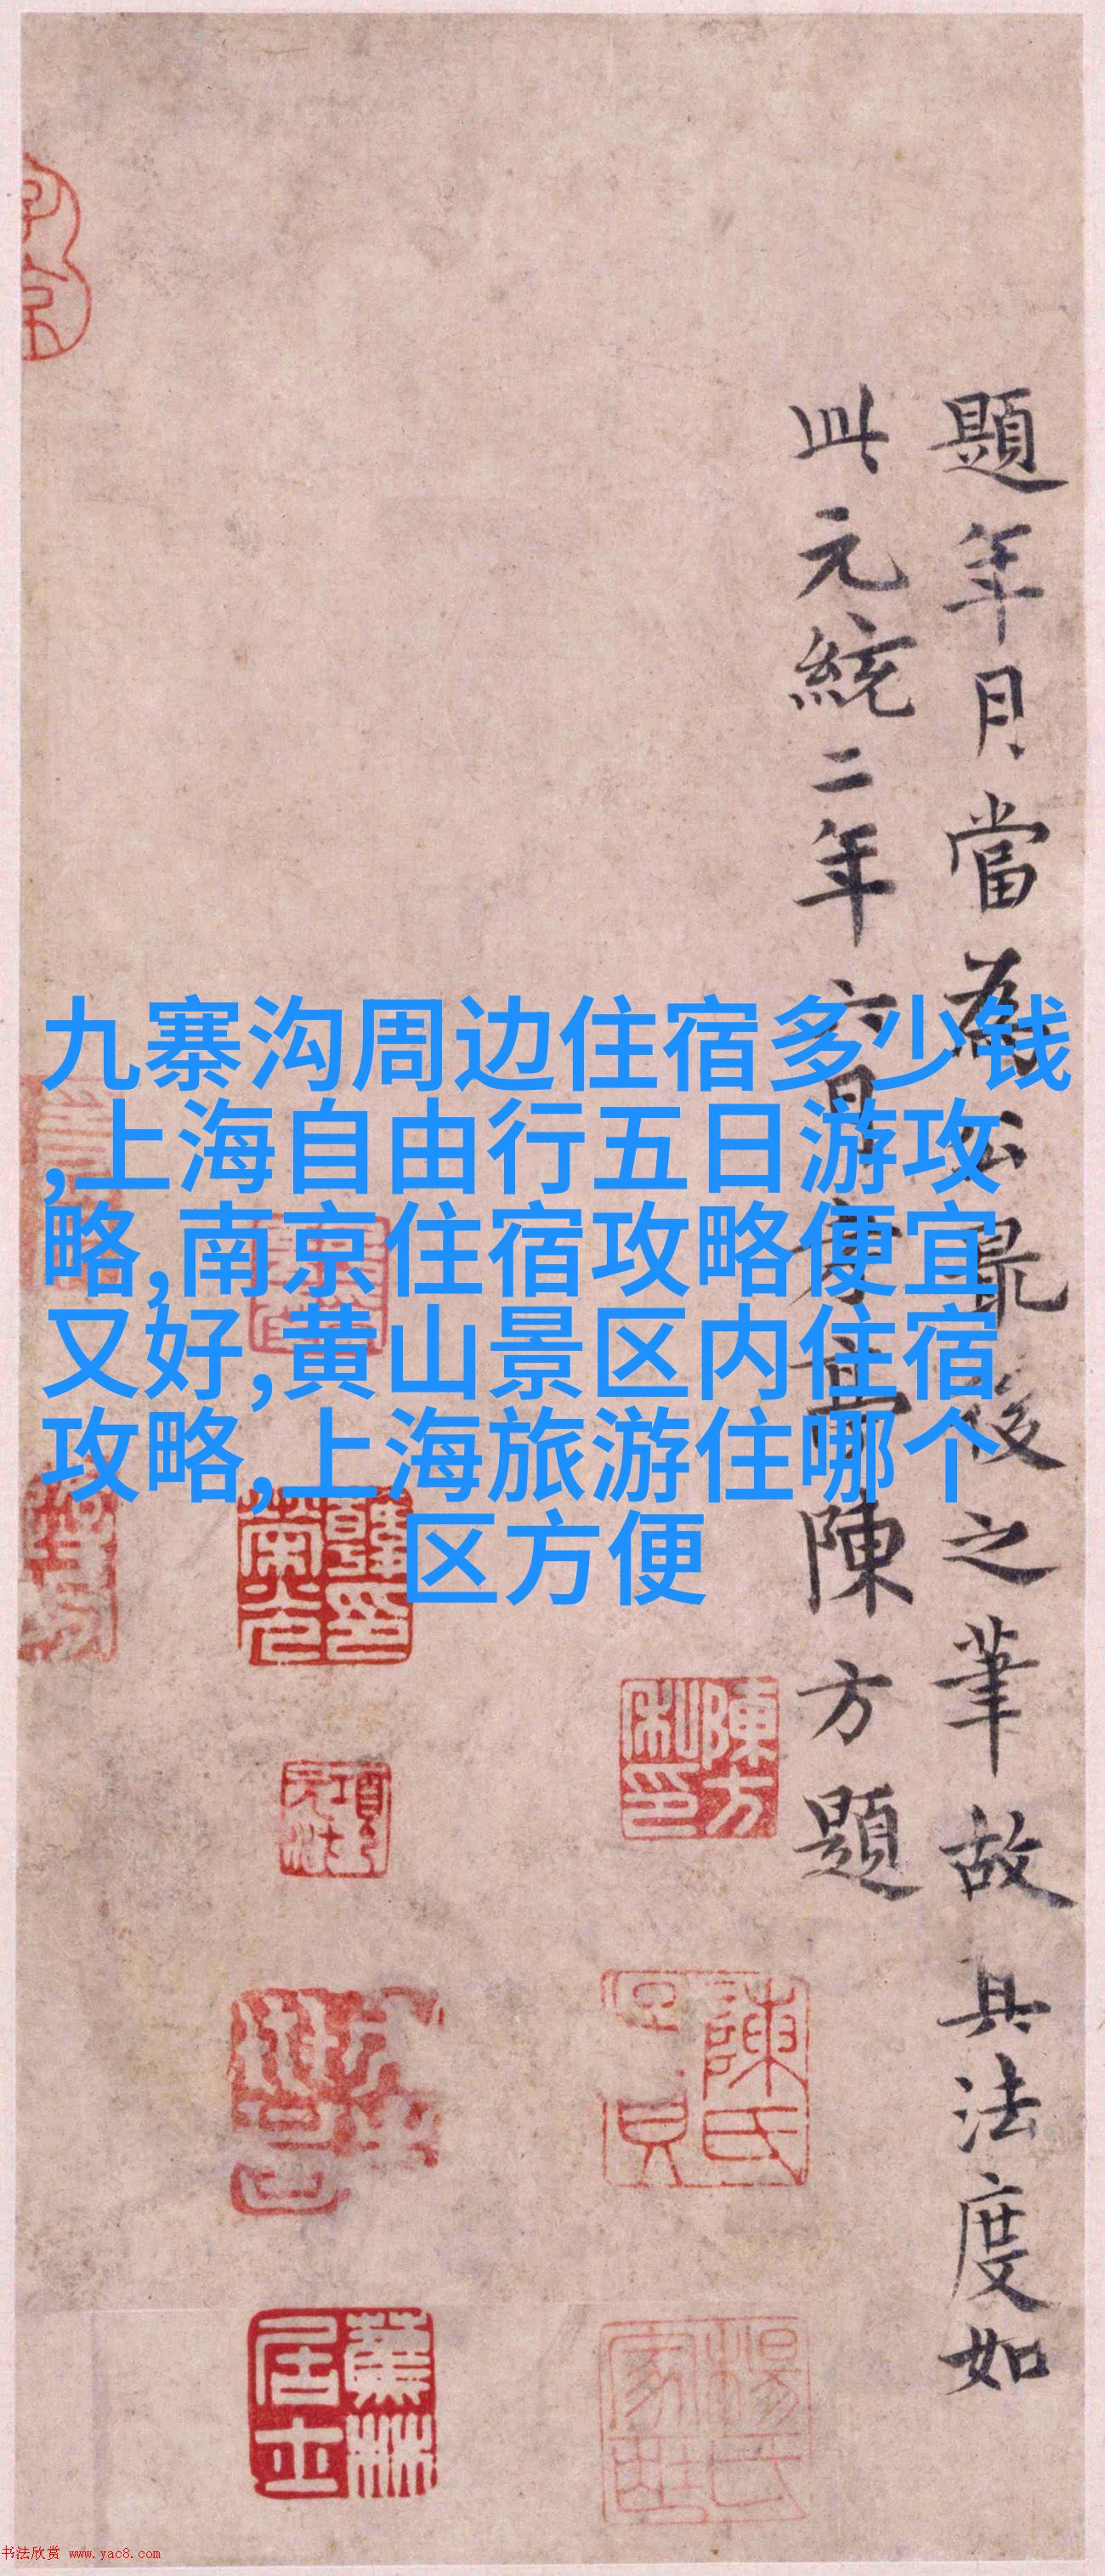 題年月當為公最後之筆故其法度如
此元統二年六月 陳方題
九寨沟周边住宿多少钱
,上海自由行五日游攻
略,南京住宿攻略便宜
又好,黄山景区内住宿
攻略,上海旅游住哪个
区方便
韓印
陳方
私印
項
陳氏
蕉林
居士
楊氏
家藏
书法欣赏 www.yac8.com